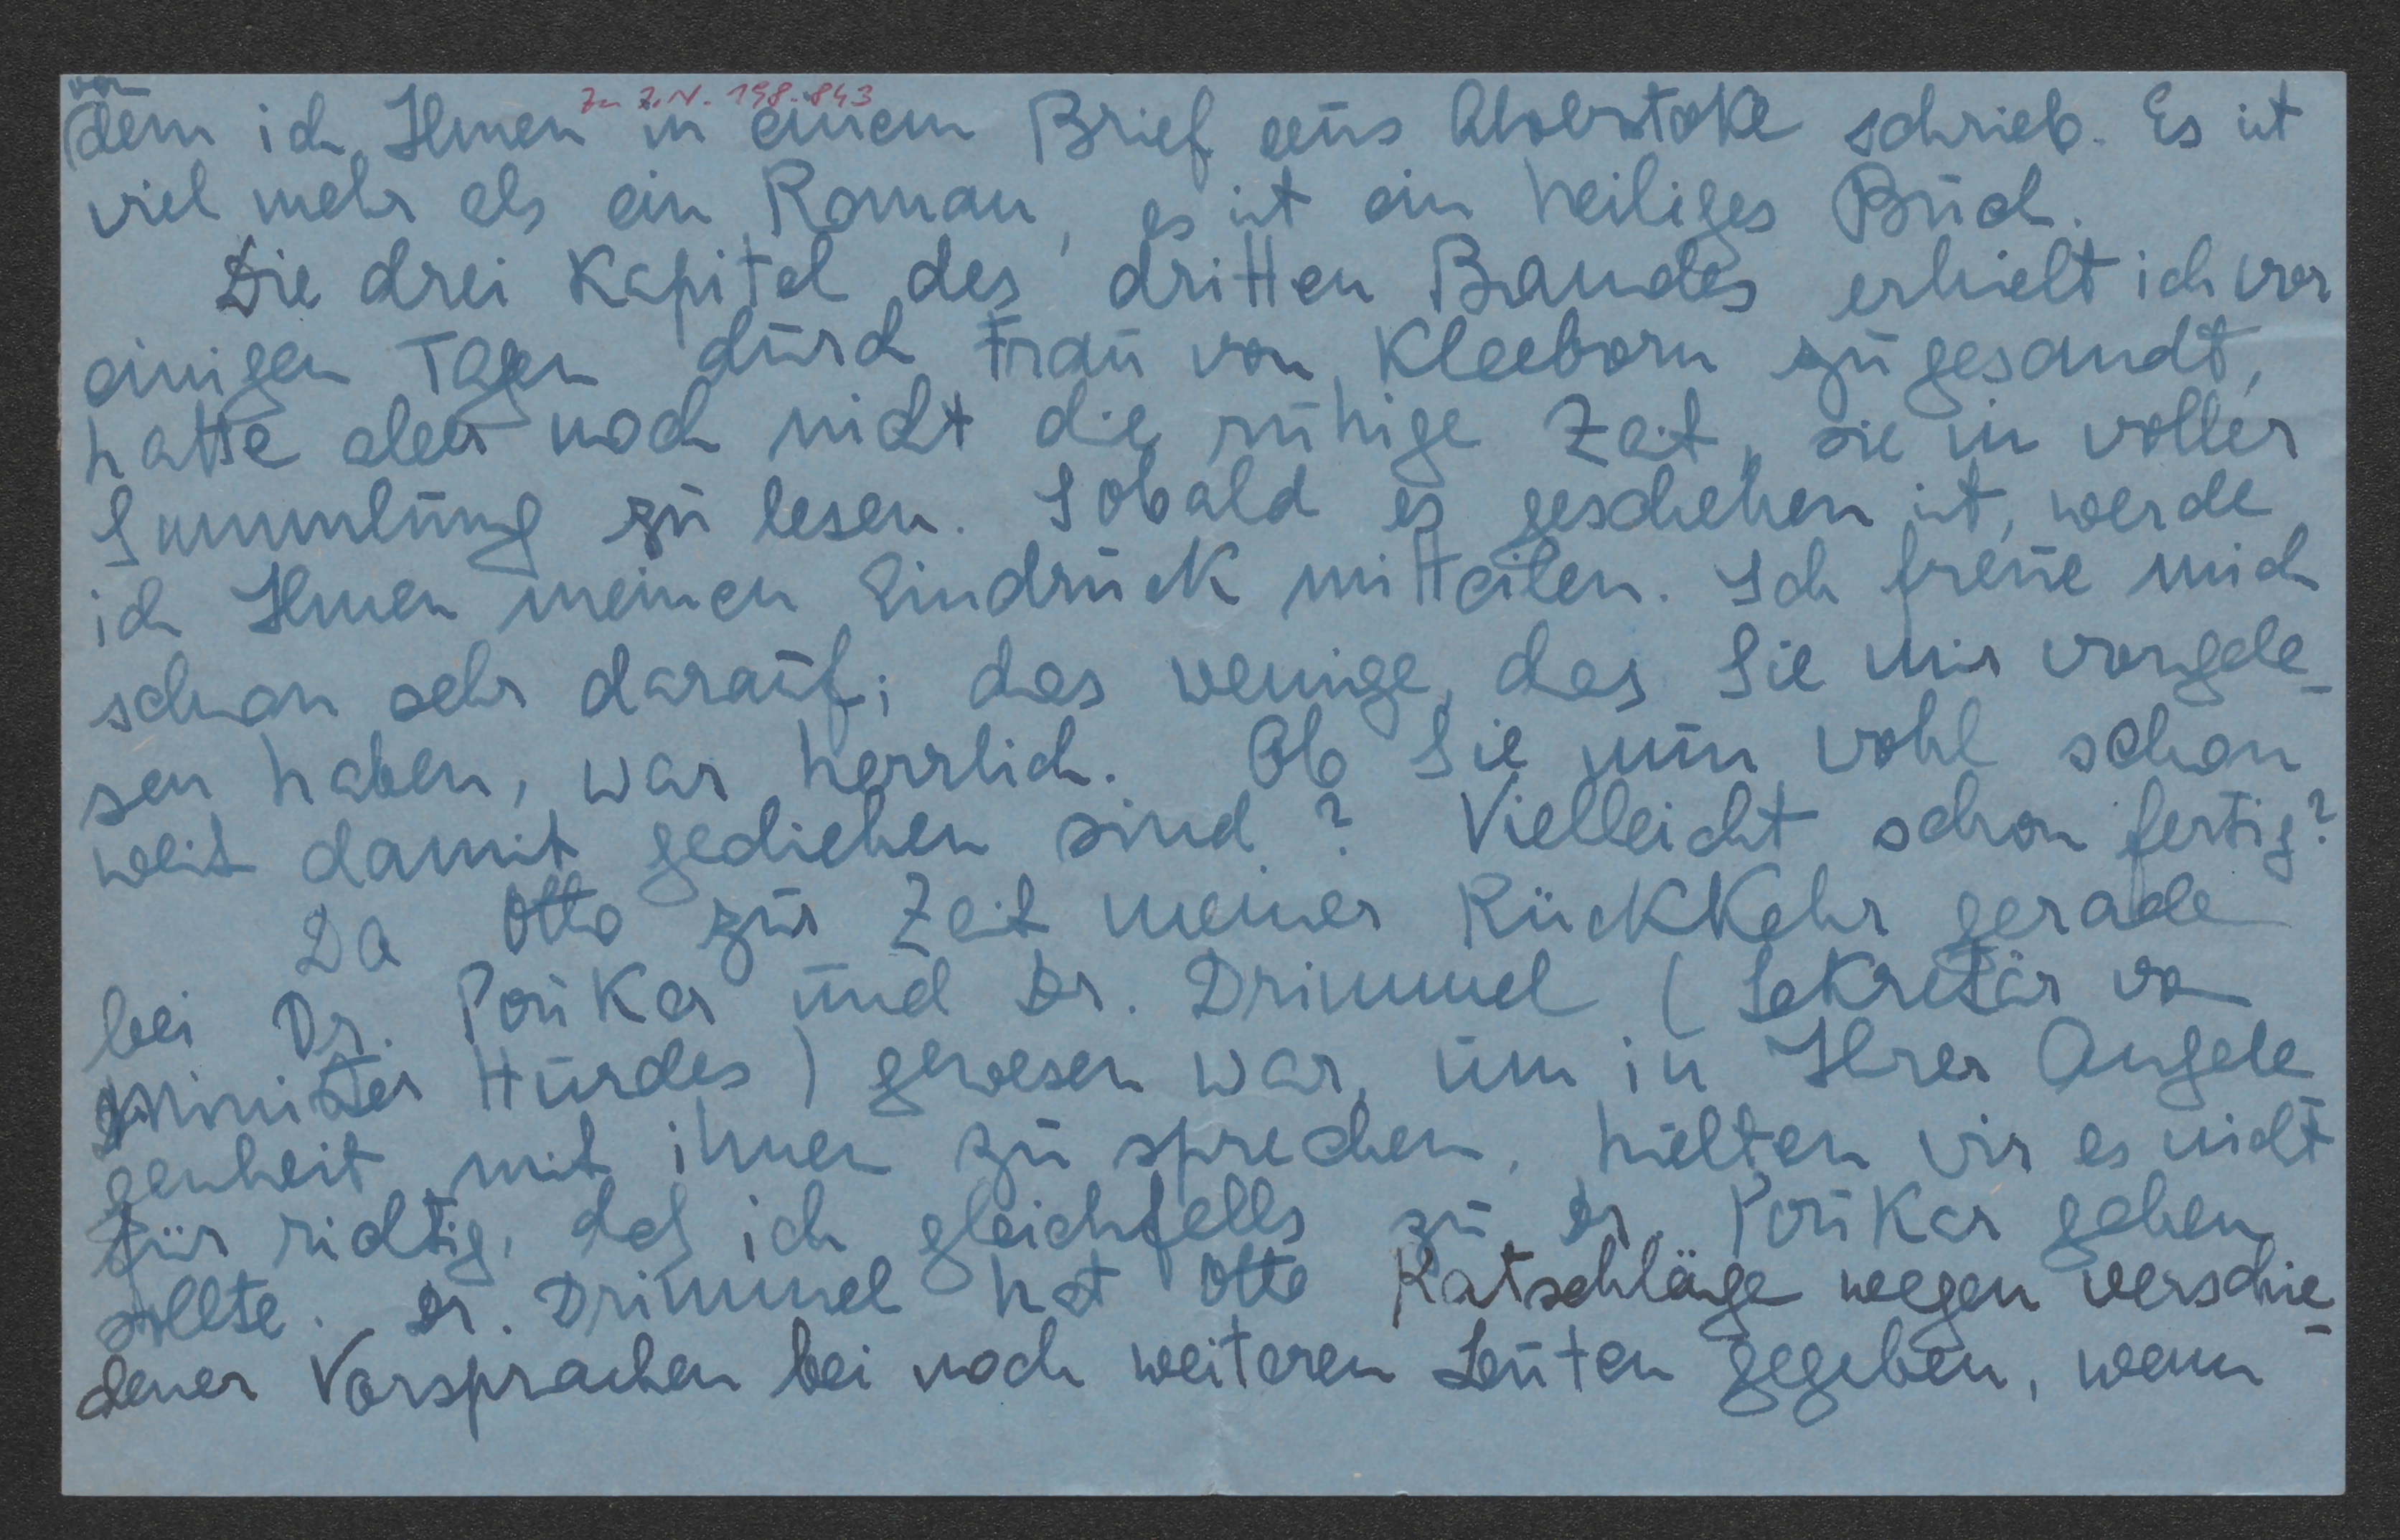 Zu Z.N. 198.843
von
dem ich Ihnen in einem Brief aus Alverstoke schrieb. Es ist
viel mehr als ein Roman, es ist ein heiliges Buch.
Die drei Kapitel des dritten Bandes erhielt ich vor
einigen Tagen durch Frau von Kleeborn zugesandt,
hatte aber noch nicht die ruhige Zeit, sie in voller
Sammlung zu lesen. Sobald es geschehen ist, werde
ich Ihnen meinen Eindruck mitteilen. Ich freue mich
schon sehr darauf; das wenige, das Sie mir vorgele-
sen haben, war herrlich. Ob Sie nun wohl schon
weit damit gediehen sind? Vielleicht schon fertig?
Da Otto zur Zeit meiner Rückkehr gerade
bei Dr. Poukar und Dr. Drimmel (Sekretär von
Minister Hurdes) gewesen war, um in Ihrer Angele
genheit mit ihnen zu sprechen, hielten wir es nicht
für richtig, daß ich gleichfalls zu Dr. Poukar gehen
sollte. Dr. Drimmel hat Otto Ratschläge wegen verschie-
dener Vorsprachen bei noch weiteren Leuten gegeben, wenn